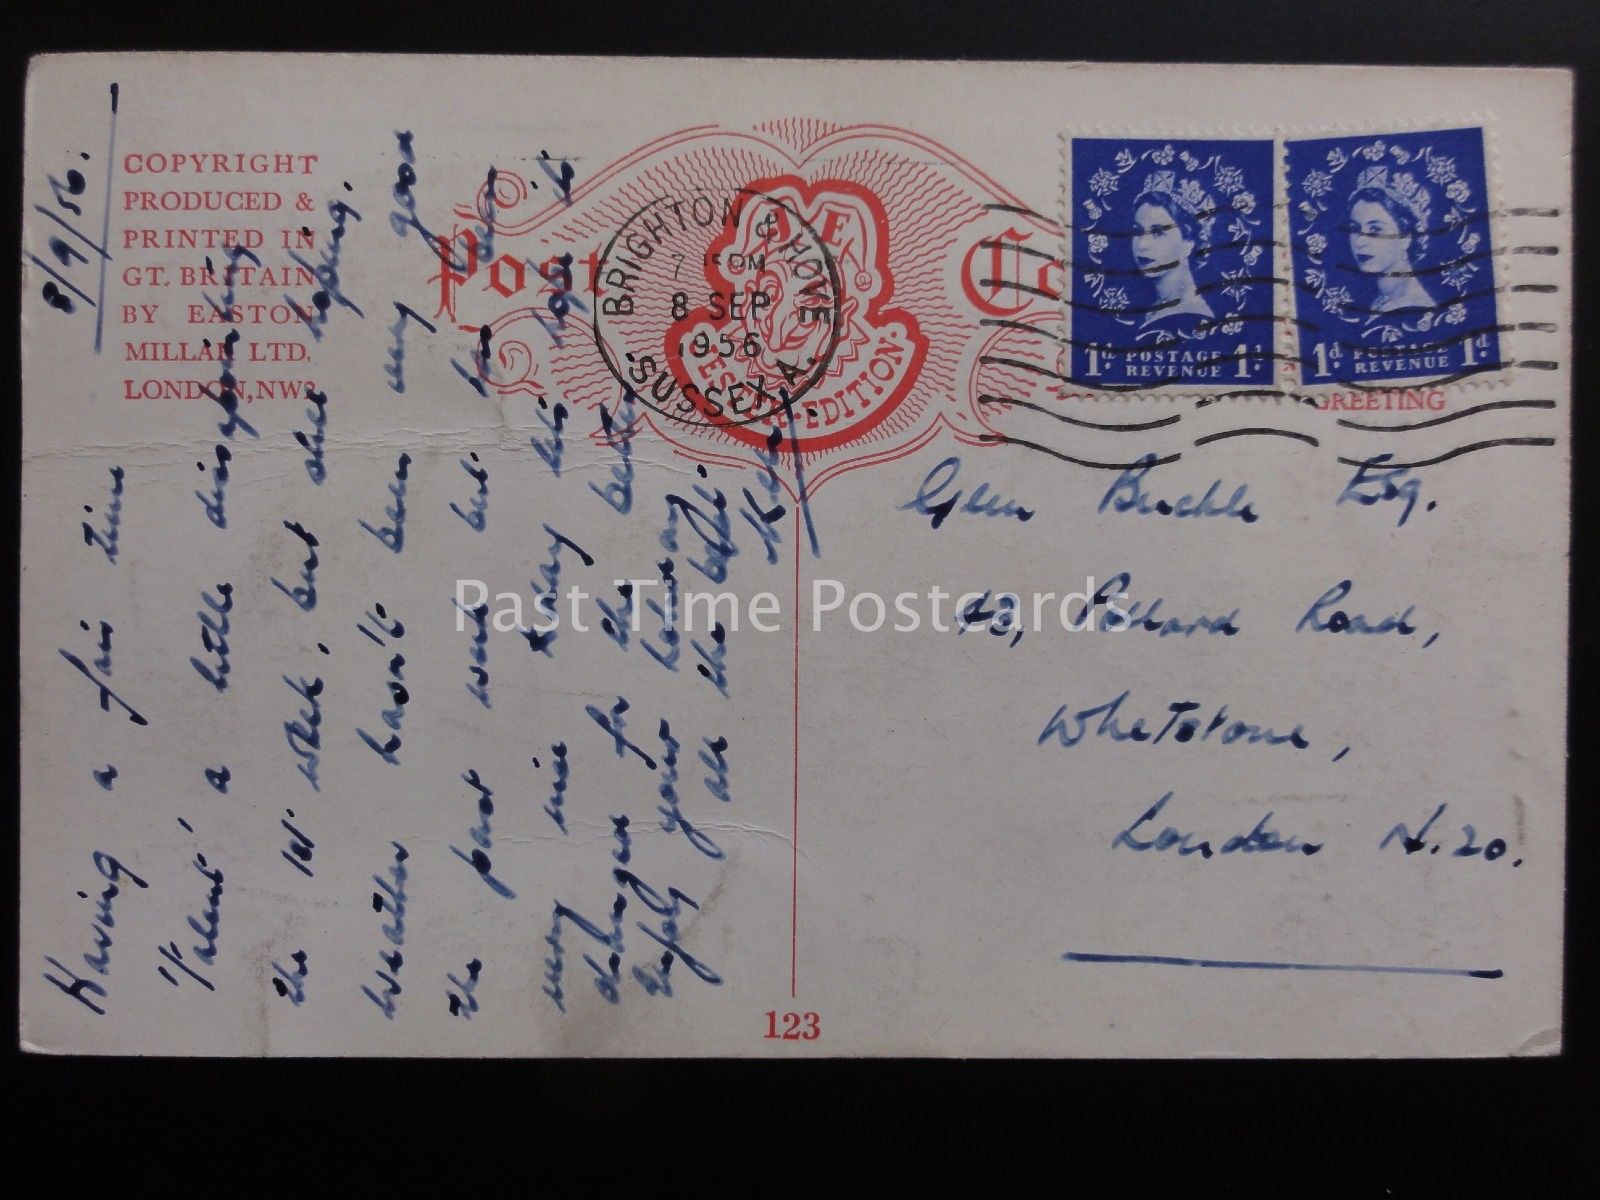 8/9/56.
Having a fair time
'Talent' a little disappointing
the 1st week, but still hoping.
Weather hasn't been very good
the past week but has been
very nice today lets hope it
changes for the better.
Enjoy your holiday
all the best
Ken
COPYRIGHT
PRODUCED &
PRINTED IN
GT. BRITAIN
BY EASTON
MILLAR LTD.
LONDON, NW2
Post
BRIGHTON & HOVE
PM
8 SEP
1956
SUSSEX A.
EDITION
1d POSTAGE 1d
REVENUE
1d POSTAGE 1d
REVENUE
GREETING
Glen Buckle Esq.
43, Pollard Road,
Whetstone,
London N.20.
Past Time Postcards
123